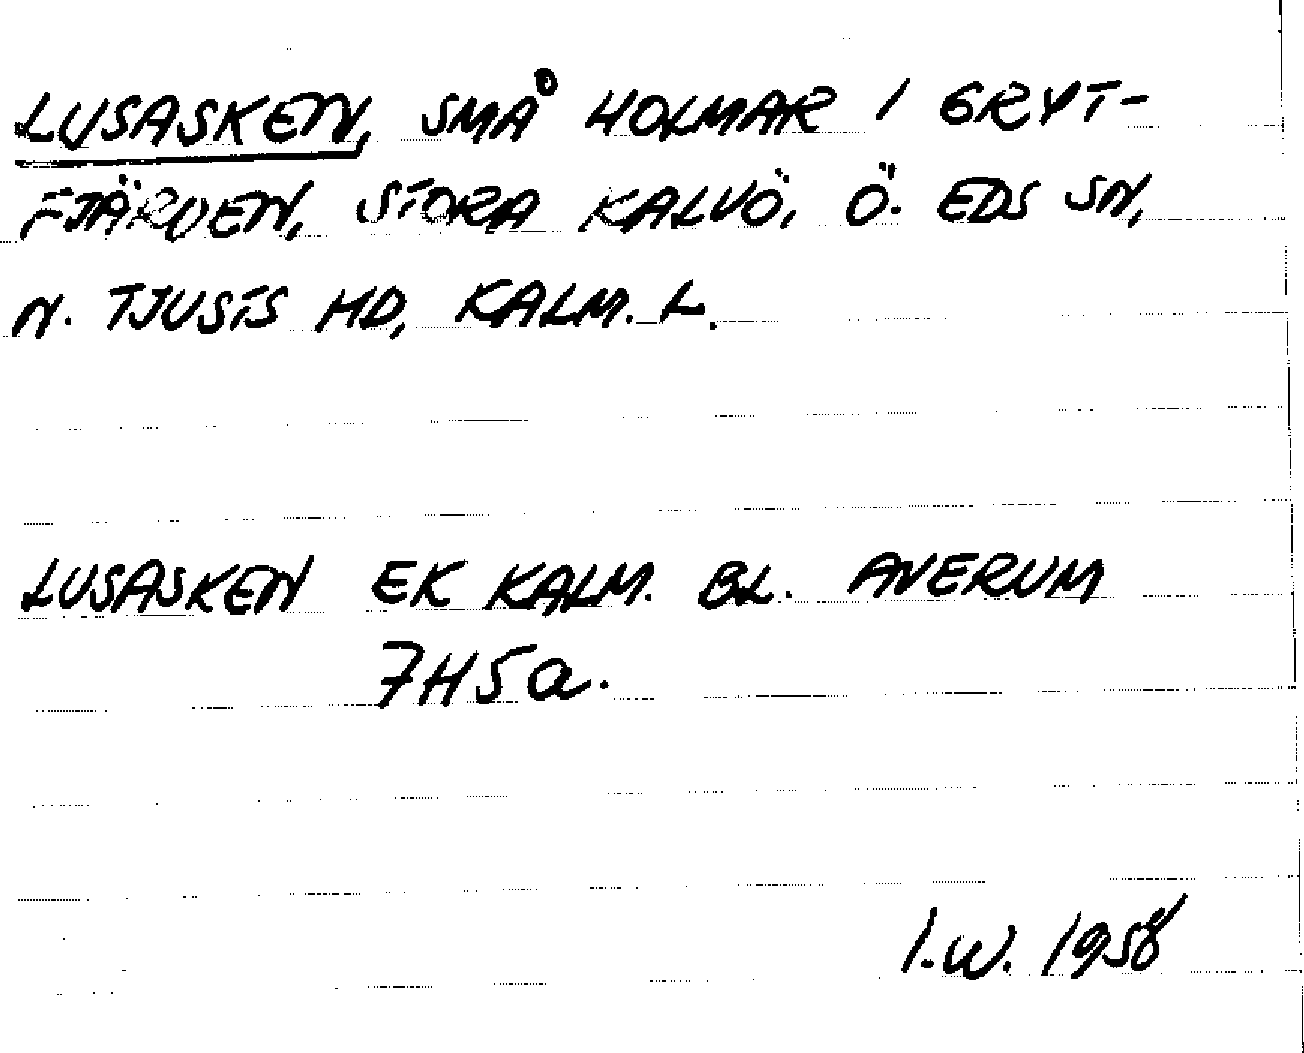 LUSASKEN, SMÅ HOLMAR I GRYT-
FJÄRDEN, STORA KALVÖ, Ö. EDS SN,
N. TJUSTS HD, KALM. L.
LUSASKEN EK KALM. BL. ANERUM
7H5a.
I.W. 1958